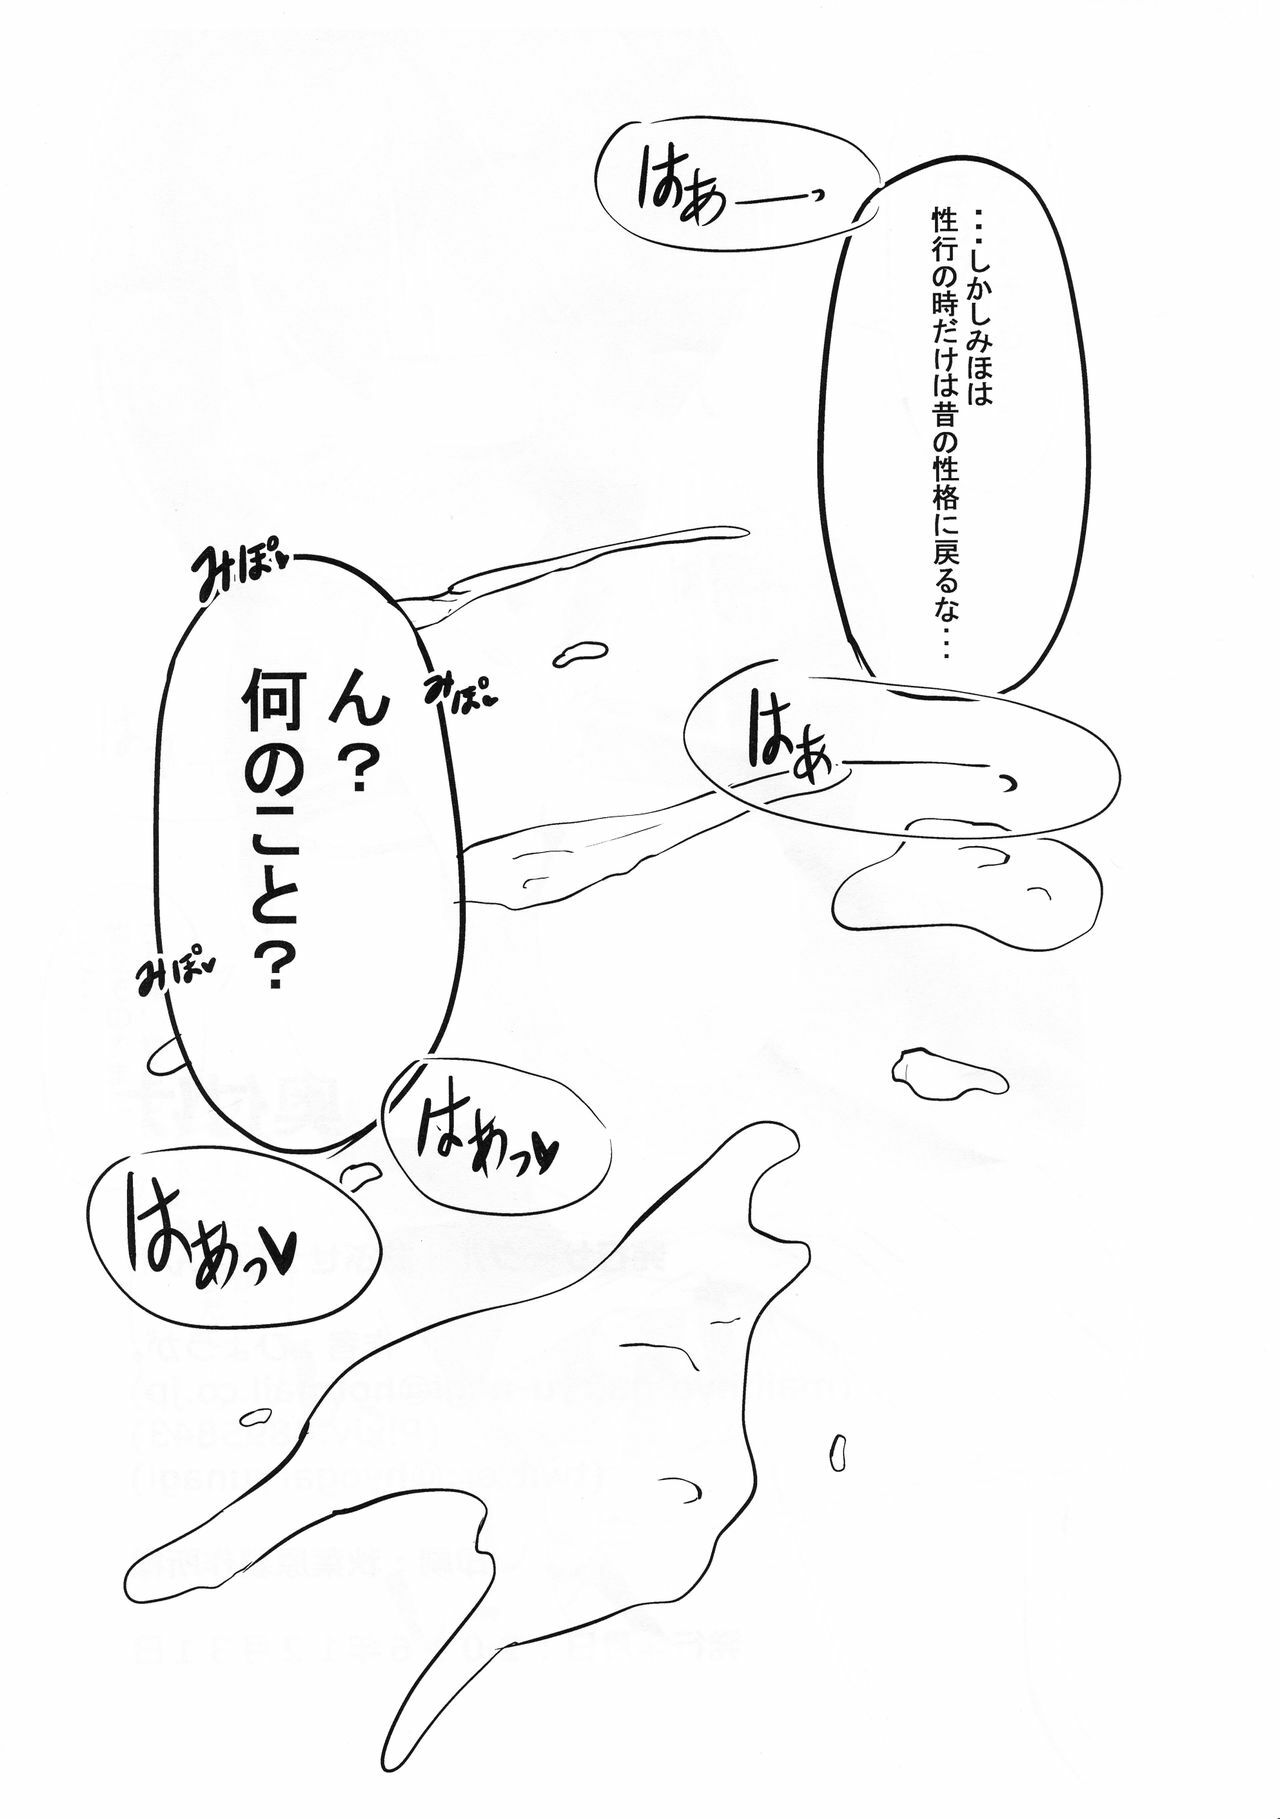 はぁーっ
…しかしみほは
性行の時だけは昔の性格に戻るな…
はぁーっ
みぽ♥
みぽ♥
ん？
何のこと？
みぽ♥
はぁっ♥
はぁっ♥